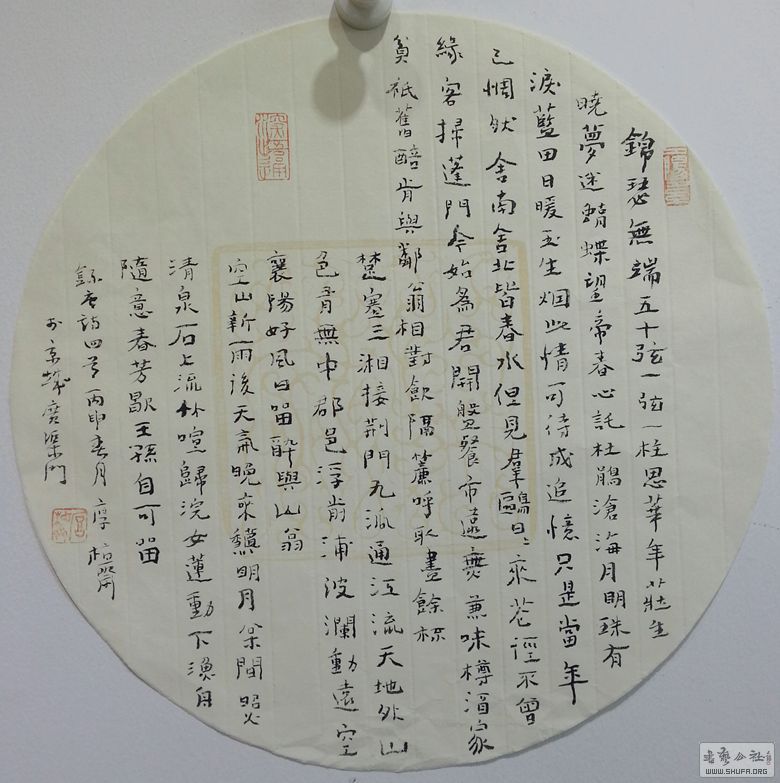 錦瑟無端五十弦一弦一柱思華年莊生
曉夢迷蝴蝶望帝春心託杜鵑滄海月明珠有
淚藍田日暖玉生烟此情可待成追憶只是當年
已惘然舍南舍北皆春水但見羣鷗日〻來花徑不曾
緣客掃蓬門今始為君開盤飱市遠無兼味樽酒家
貧祇舊醅肯與鄰翁相對飲隔籬呼取盡餘杯
楚塞三湘接荊門九派通江流天地外山
色有無中郡邑浮前浦波瀾動遠空
襄陽好風日留醉與山翁
空山新雨後天氣晚來秋明月松間照
清泉石上流竹喧歸浣女蓮動下漁舟
隨意春芳歇王孫自可留
錄唐詩四首丙申春月厚柏齋
於京城廣渠門
書藝公社
WWW.SHUFA.ORG